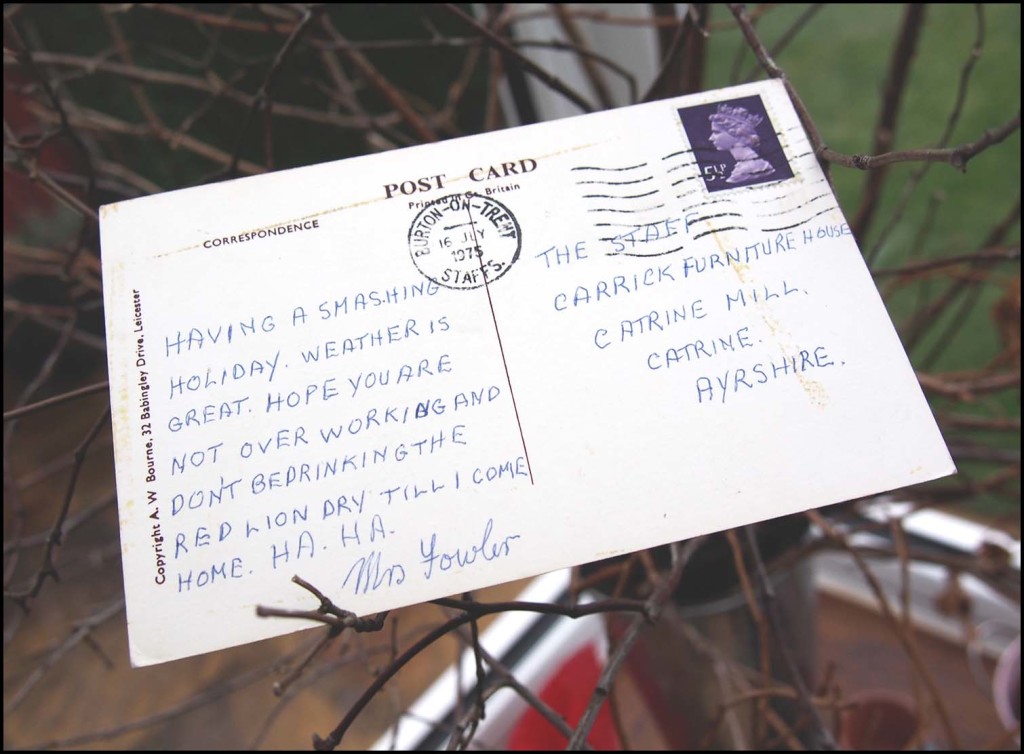 POST CARD
Printed in Gt. Britain
CORRESPONDENCE
BURTON-ON-TRENT
16 JLY
1975
STAFFS.
5½P
Copyright A. W Bourne, 32 Babingley Drive, Leicester
HAVING A SMASHING
HOLIDAY. WEATHER IS
GREAT. HOPE YOU ARE
NOT OVER WORKING AND
DON'T BE DRINKING THE
RED LION DRY TILL I COME
HOME. HA. HA.
Mrs Fowler
THE STAFF
CARRICK FURNITURE HOUSE
CATRINE MILL.
CATRINE.
AYRSHIRE.